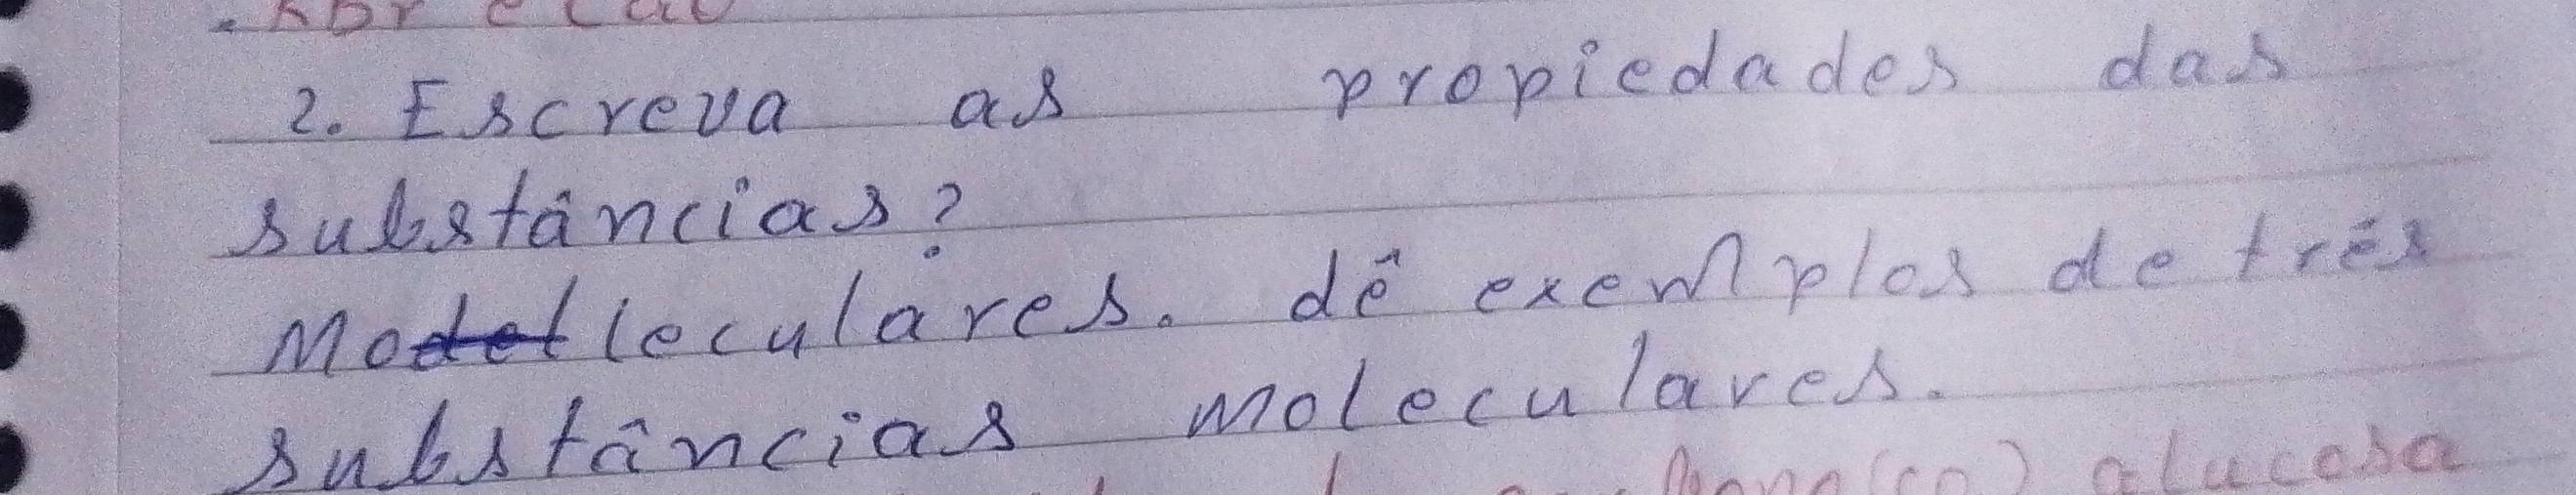 2. Escreva as propiedades das
substâncias?
Moleculares. dê exemplos de três
substâncias moleculares.
glucosa